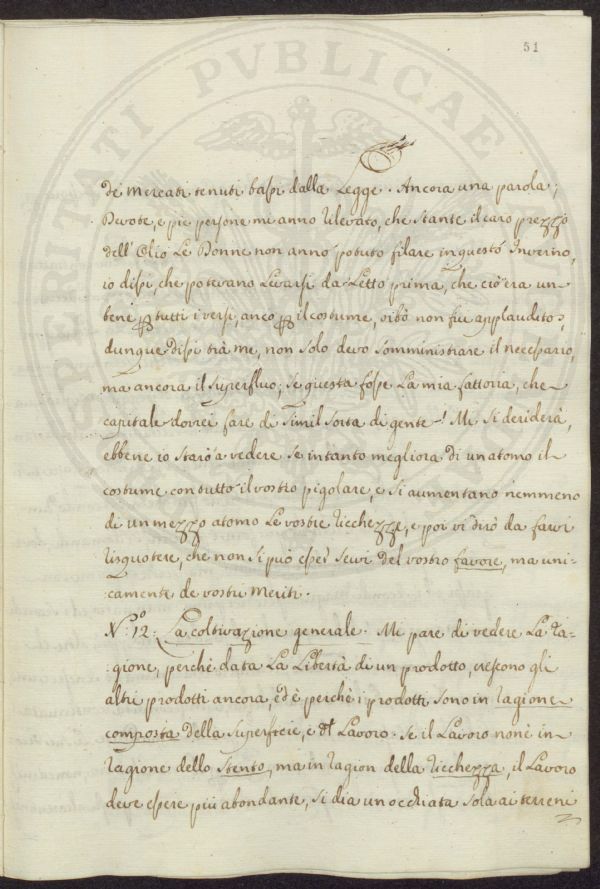 51
de' mercati tenuti bassi dalla Legge. Ancora una parola;
Devote, e pie persone mi anno rilevato, che stante il caro prezzo
dell'Olio Le Donne non anno potuto filare in questo Inverno,
io dissi, che potevano Levarsi da Letto prima, che ciò era un
bene p tutti i versi, anco p il costume, oibò non fui applaudito;
dunque dissi trà me, non solo devo somministrare il necessario,
ma ancora il superfluo, se questa fosse La mia fattoria, che
capitale dovrei fare di simil sorta di gente! Mi si deriderà,
ebbene io starò a vedere se intanto megliora di un atomo il
costume con tutto il vostro pigolare, e si aumentano nemmeno
di un mezzo atomo Le vostre ricchezze, e poi vi dirò da farvi
risquotere, che non si può esser servi del vostro favore, ma uni-
:camente de vostri meriti.
N.º 12: La coltivazione generale. Mi pare di vedere La ra-
:gione, perchè data La Libertà di un prodotto, crescono gli
altri prodotti ancora, ed è perchè i prodotti sono in ragione
composta della superficie, e del Lavoro. Se il Lavoro non è in
ragione dello stento, ma in ragion della ricchezza, il Lavoro
deve essere più abondante, si dia un occhiata sola ai terreni
PROSPERITATI PVBLICAE